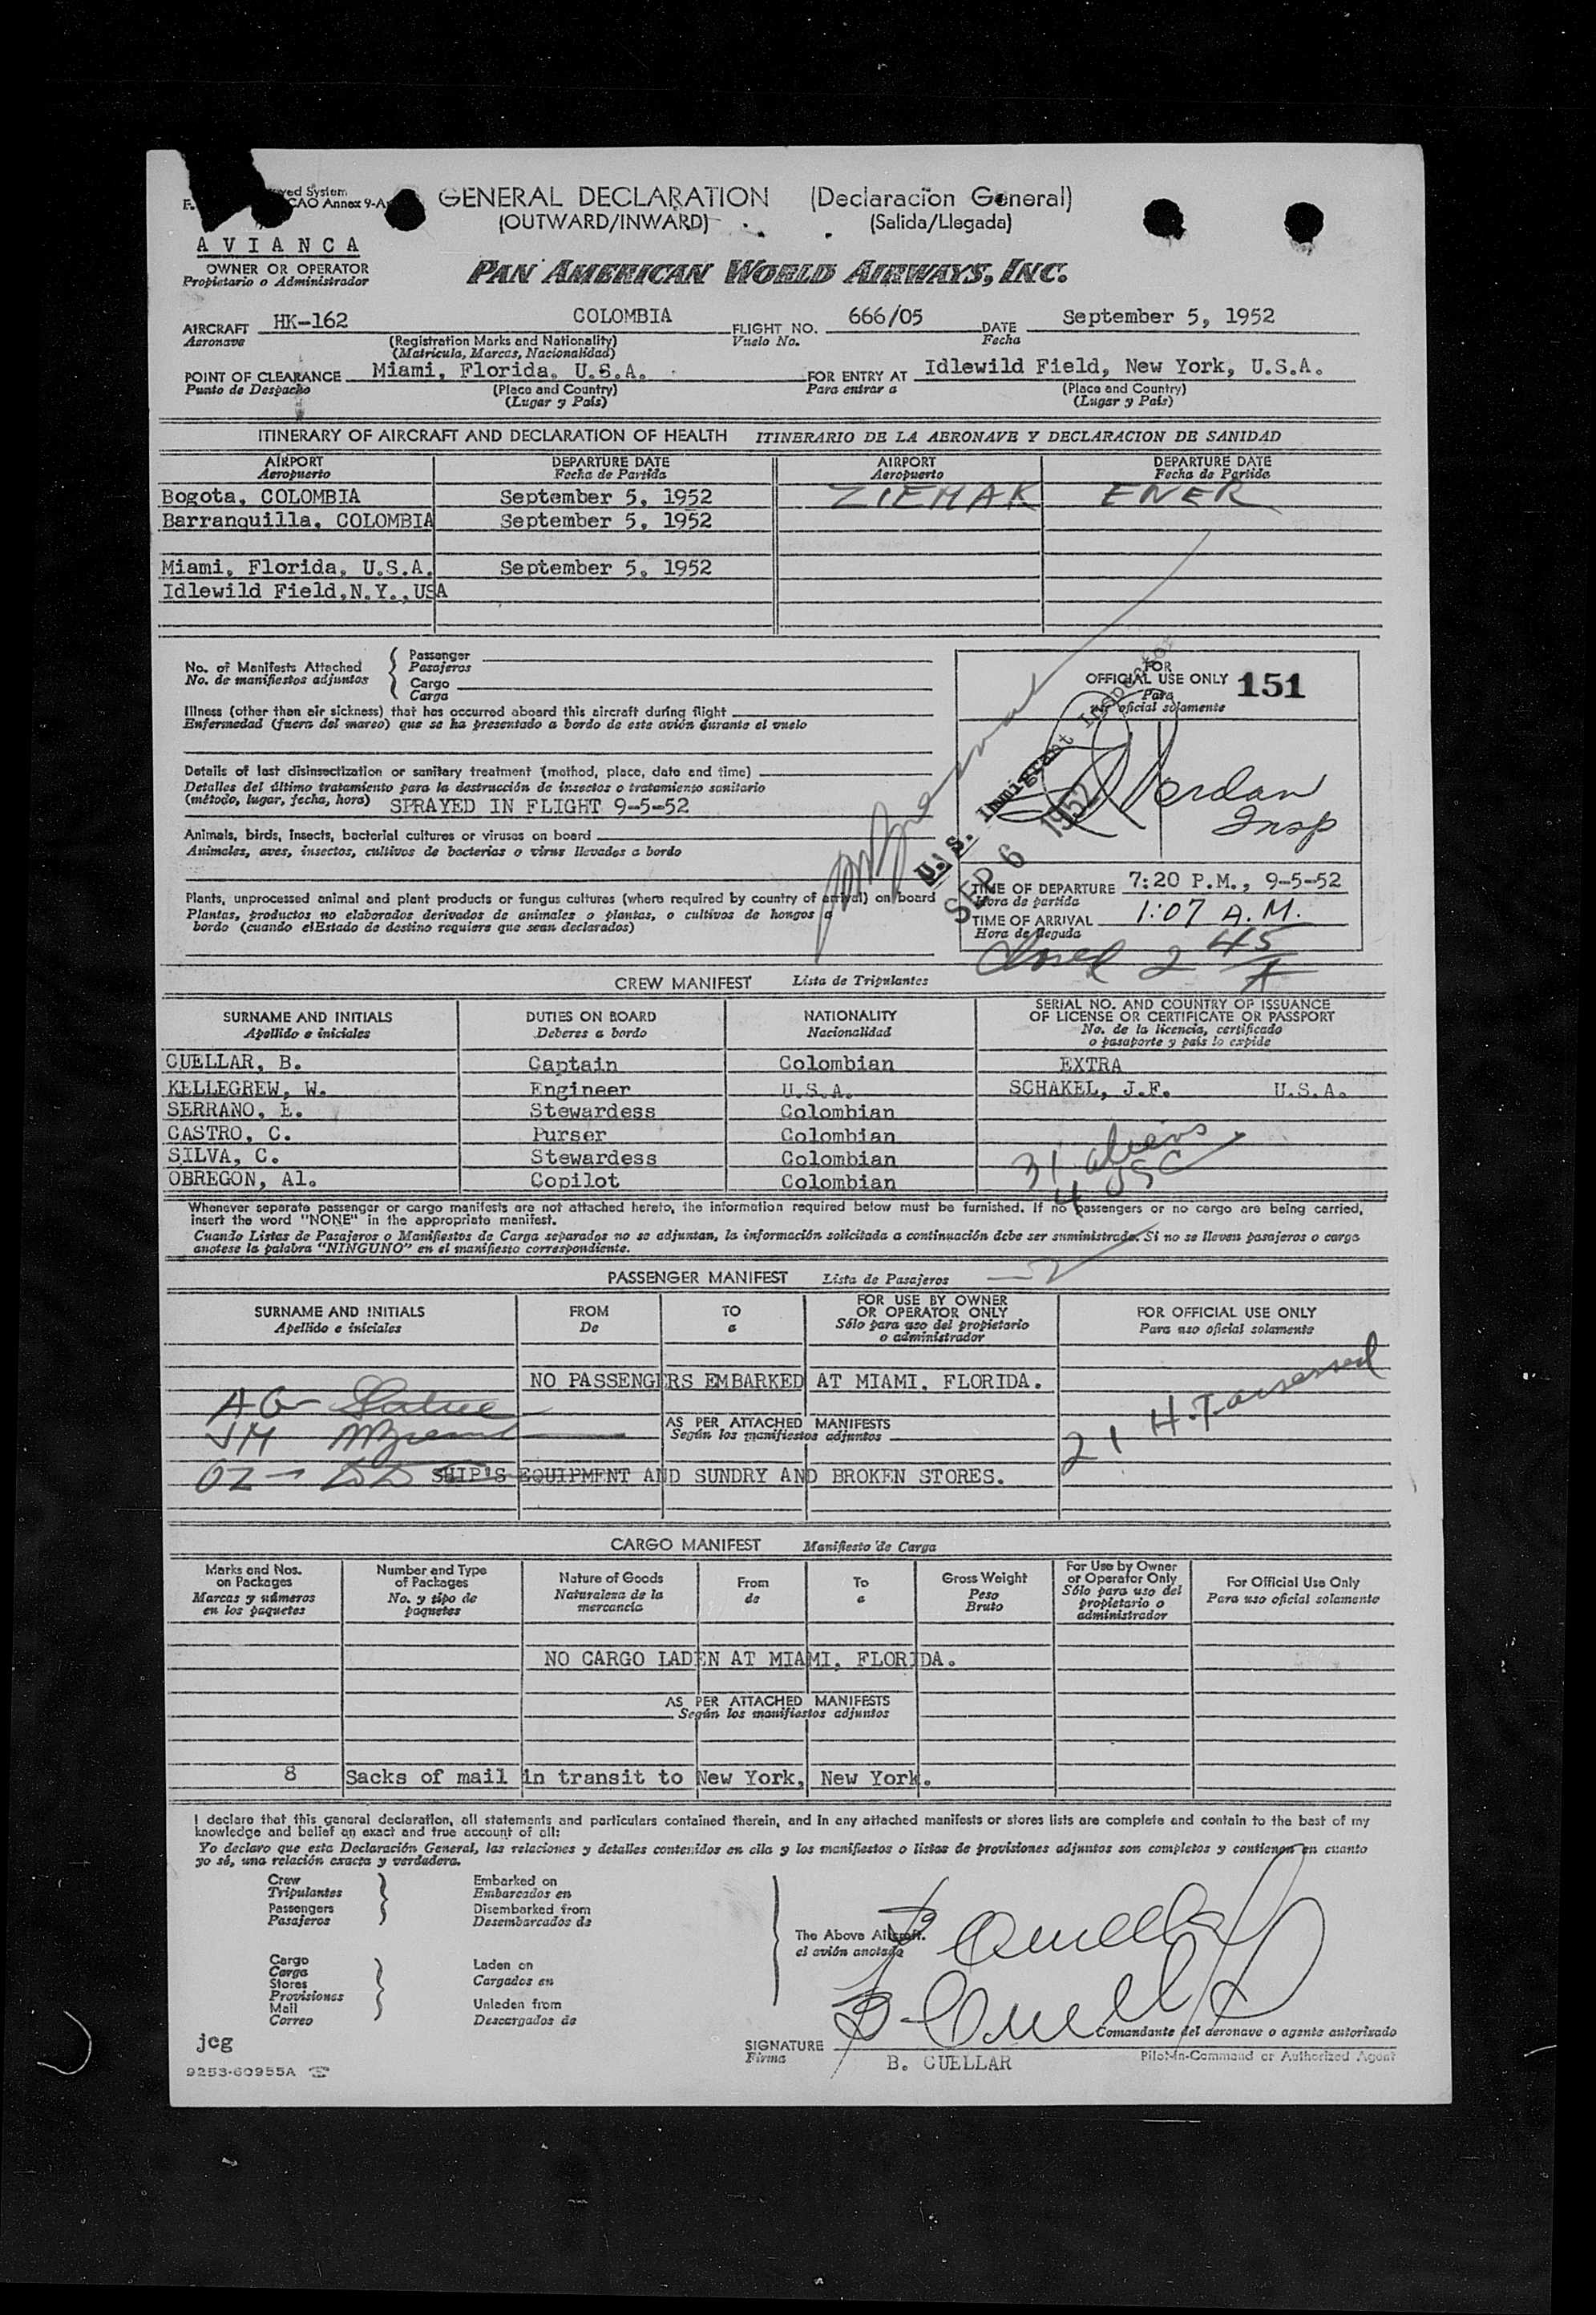 ved System
CAO Annex 9-A
GENERAL DECLARATION (Declaración General)
(OUTWARD/INWARD) (Salida/Llegada)
AVIANCA
OWNER OR OPERATOR
Propietario o Administrador
PAN AMERICAN WORLD AIRWAYS, INC.
AIRCRAFT HK-162 COLOMBIA FLIGHT NO. 666/05 DATE September 5, 1952
Aeronave (Registration Marks and Nationality) Vuelo No. Fecha
(Matricula, Marcas, Nacionalidad)
POINT OF CLEARANCE Miami, Florida, U.S.A. FOR ENTRY AT Idlewild Field, New York, U.S.A.
Punto de Despacho (Place and Country) Para entrar a (Place and Country)
(Lugar y País) (Lugar y País)
ITINERARY OF AIRCRAFT AND DECLARATION OF HEALTH ITINERARIO DE LA AERONAVE Y DECLARACION DE SANIDAD
AIRPORT DEPARTURE DATE AIRPORT DEPARTURE DATE
Aeropuerto Fecha de Partida Aeropuerto Fecha de Partida
Bogota, COLOMBIA September 5, 1952 ZIEMAK ENER
Barranquilla, COLOMBIA September 5, 1952
Miami, Florida, U.S.A. September 5, 1952
Idlewild Field,N.Y.,USA
No. of Manifests Attached Passenger
No. de manifiestos adjuntos Pasajeros
Cargo
Carga
FOR
OFFICIAL USE ONLY 151
Para
uso oficial solamente
Illness (other than air sickness) that has occurred aboard this aircraft during flight
Enfermedad (fuera del mareo) que se ha presentado a bordo de este avión durante el vuelo
Details of last disinsectization or sanitary treatment (method, place, date and time)
Detalles del último tratamiento para la destrucción de insectos o tratamiento sanitario
(método, lugar, fecha, hora) SPRAYED IN FLIGHT 9-5-52
U. S. Immigrant Inspector
SEP 6 1952
Jordan
Insp
Animals, birds, insects, bacterial cultures or viruses on board
Animales, aves, insectos, cultivos de bacterias o virus llevados a bordo
Plants, unprocessed animal and plant products or fungus cultures (where required by country of arrival) on board
Plantas, productos no elaborados derivados de animales o plantas, o cultivos de hongos a
bordo (cuando el Estado de destino requiere que sean declarados)
TIME OF DEPARTURE 7:20 P.M., 9-5-52
Hora de partida
TIME OF ARRIVAL 1:07 A.M.
Hora de llegada
Closed 2 45 A
CREW MANIFEST Lista de Tripulantes
SURNAME AND INITIALS DUTIES ON BOARD NATIONALITY SERIAL NO. AND COUNTRY OF ISSUANCE
Apellido e iniciales Deberes a bordo Nacionalidad OF LICENSE OR CERTIFICATE OR PASSPORT
No. de la licencia, certificado
o pasaporte y país lo expide
CUELLAR, B. Captain Colombian EXTRA
KELLEGREW, W. Engineer U.S.A. SCHAKEL, J.F. U.S.A.
SERRANO, E. Stewardess Colombian
CASTRO, C. Purser Colombian
SILVA, C. Stewardess Colombian
OBREGON, Al. Copilot Colombian
31 aliens
4 USC
Whenever separate passenger or cargo manifests are not attached hereto, the information required below must be furnished. If no passengers or no cargo are being carried,
insert the word "NONE" in the appropriate manifest.
Cuando Listas de Pasajeros o Manifiestos de Carga separados no se adjuntan, la información solicitada a continuación debe ser suministrada. Si no se lleven pasajeros o carga
anotese la palabra "NINGUNO" en el manifiesto correspondiente.
PASSENGER MANIFEST Lista de Pasajeros
SURNAME AND INITIALS FROM TO FOR USE BY OWNER FOR OFFICIAL USE ONLY
Apellido e iniciales De a OR OPERATOR ONLY Para uso oficial solamente
Sólo para uso del propietario
o administrador
NO PASSENGERS EMBARKED AT MIAMI, FLORIDA.
21 H.T. assessed
AS PER ATTACHED MANIFESTS
Según los manifiestos adjuntos
SHIP'S EQUIPMENT AND SUNDRY AND BROKEN STORES.
CARGO MANIFEST Manifiesto de Carga
Marks and Nos. Number and Type Nature of Goods From To Gross Weight For Use by Owner For Official Use Only
on Packages of Packages Naturaleza de la de a Peso or Operator Only Para uso oficial solamente
Marcas y números No. y tipo de mercancía Bruto Sólo para uso del
en los paquetes paquetes propietario o
administrador
NO CARGO LADEN AT MIAMI, FLORIDA.
AS PER ATTACHED MANIFESTS
Según los manifiestos adjuntos
8 Sacks of mail in transit to New York, New York.
I declare that this general declaration, all statements and particulars contained therein, and in any attached manifests or stores lists are complete and contain to the best of my
knowledge and belief an exact and true account of all:
Yo declaro que esta Declaración General, las relaciones y detalles contenidos en ella y los manifiestos o listas de provisiones adjuntos son completos y contienen en cuanto
yo sé, una relación exacta y verdadera.
Crew Embarked on
Tripulantes Embarcados en
Passengers Disembarked from
Pasajeros Desembarcados de
The Above Aircraft.
el avión anotado
Cargo Laden on
Carga Cargados en
Stores
Provisiones
Mail Unladen from
Correo Descargados de
B Cuellar
B. Cuellar
jcg
Comandante del aeronave o agente autorizado
SIGNATURE
Firma B. CUELLAR Pilot-in-Command or Authorized Agent
9253-60955A